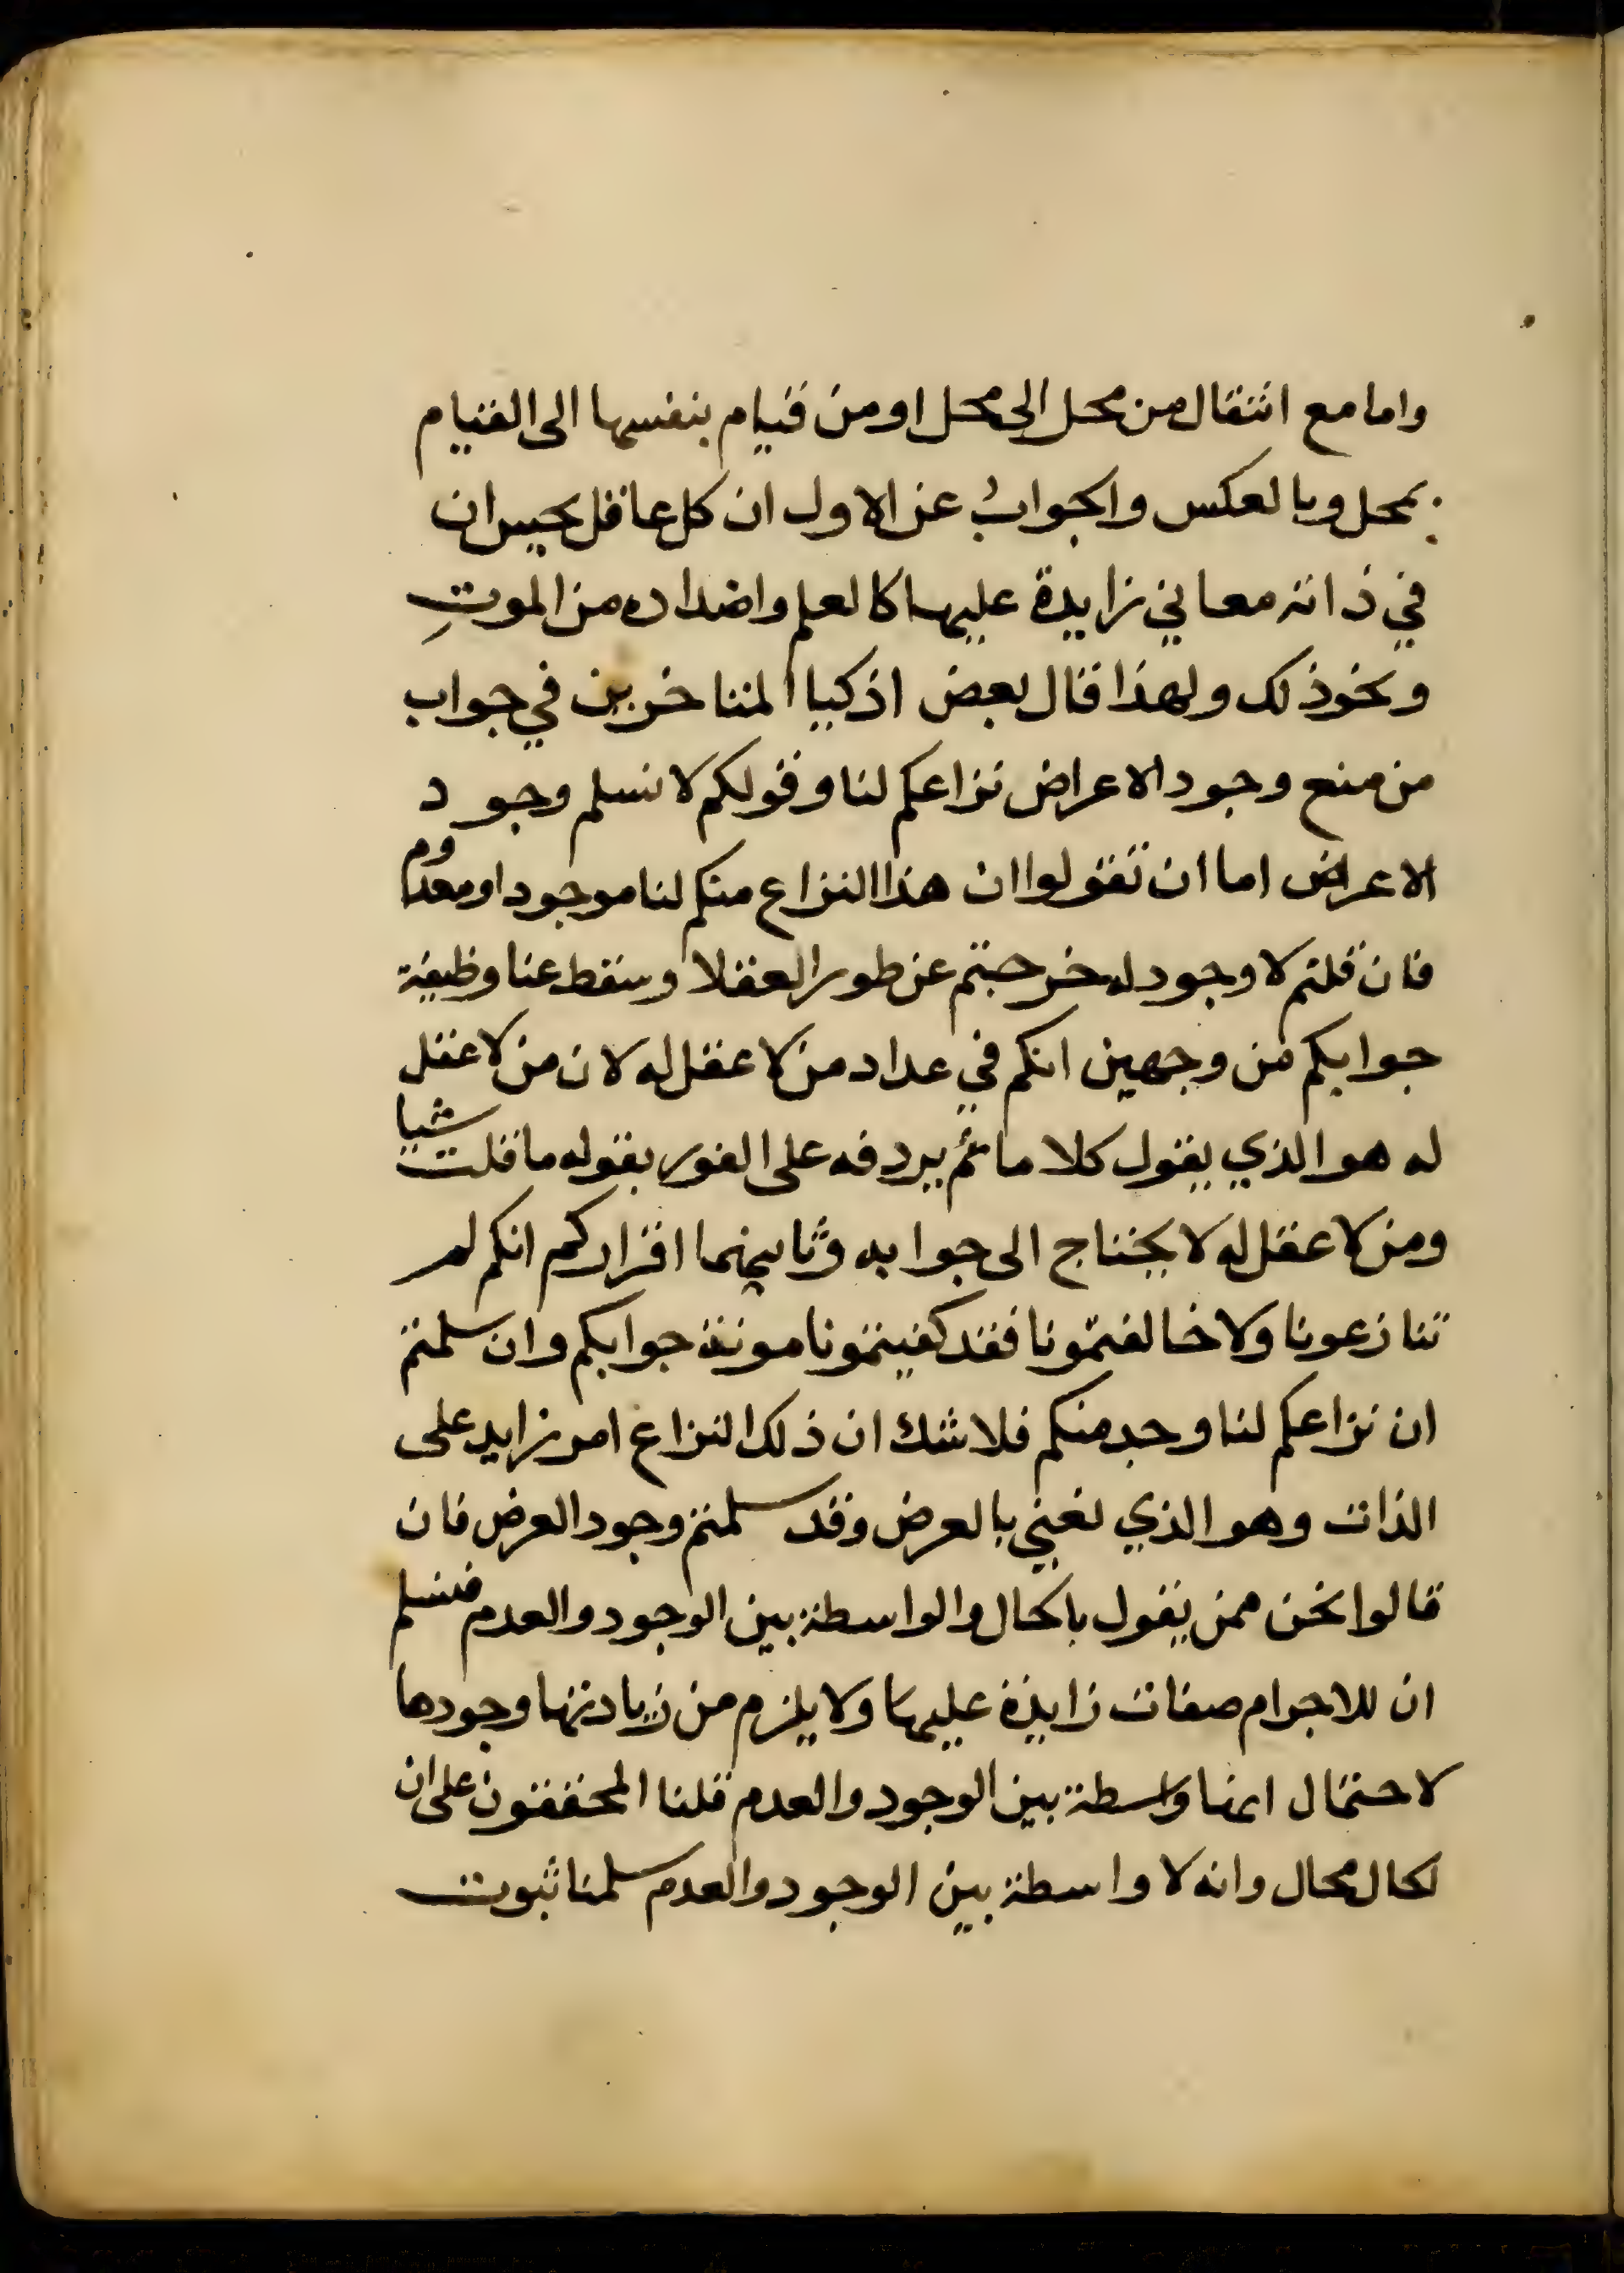 واما مع انتقال من محل الى محل او من قيام بنفسها الى القيام
بمحل وبالعكس والجواب عن الاول ان كل عاقل يحس ان
في ذاته معاني زايدة عليها كالعلم واضداده من الموت
ونحو ذلك ولهذا قال بعض اذكيا المتاخرين في جواب
من منع وجود الاعراض نزاعكم لنا وقولكم لا نسلم وجود
الاعراض اما ان تقولوا ان هذا النزاع منكم لنا موجود او معدوم
فان قلتم لا وجود له خرجتم عن طور العقلا وسقط عنا وظيفة
جوابكم من وجهين انكم في عداد من لا عقل له لان من لا عقل
له هو الذي يقول كلاما ثم يردفه على الفور بقوله ما قلت شيا
ومن لا عقل له لا يحتاج الى جوابه وثانيهما اقراركم انكم لم
تنازعونا ولا خالفتمونا فقد كفيتمونا مونة جوابكم وان سلمتم
ان نزاعكم لنا وجد منكم فلا شك ان ذلك النزاع امر زايد على
الذات وهو الذي نعني بالعرض وقد سلمتم وجود العرض فان
قالوا نحن ممن يقول بالحال والواسطة بين الوجود والعدم فنسلم
ان للاجرام صفات زايدة عليها ولا يلزم من زيادتها وجودها
لاحتمال انها واسطة بين الوجود والعدم قلنا المحققون على ان
لحال محال وانه لا واسطة بين الوجود والعدم سلمنا ثبوت